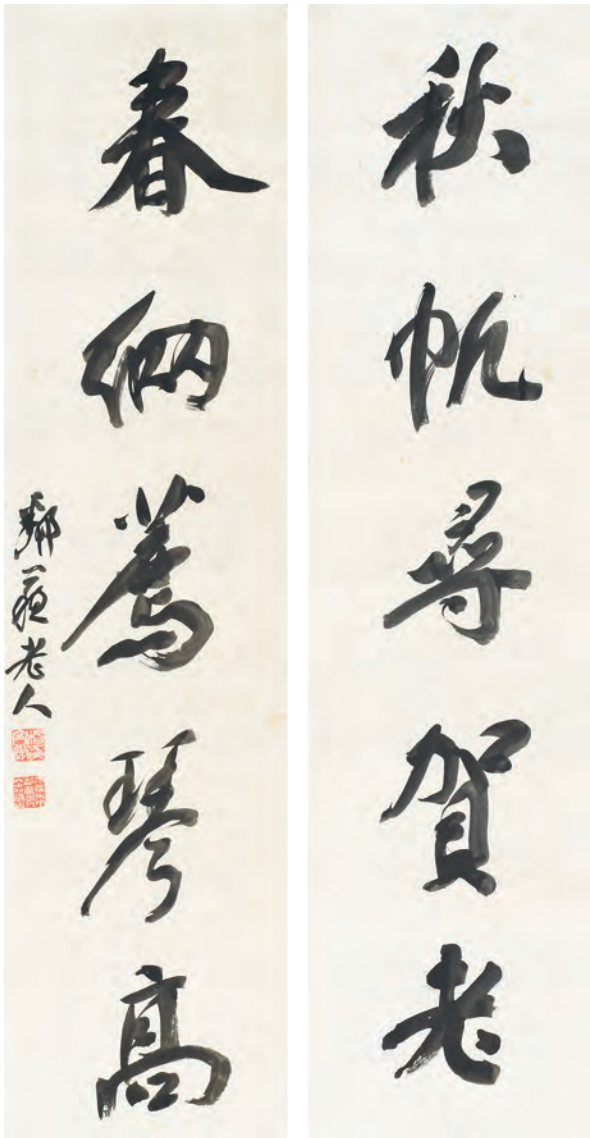 秋帆尋賀老
春網薦琴高
鄰蘇老人